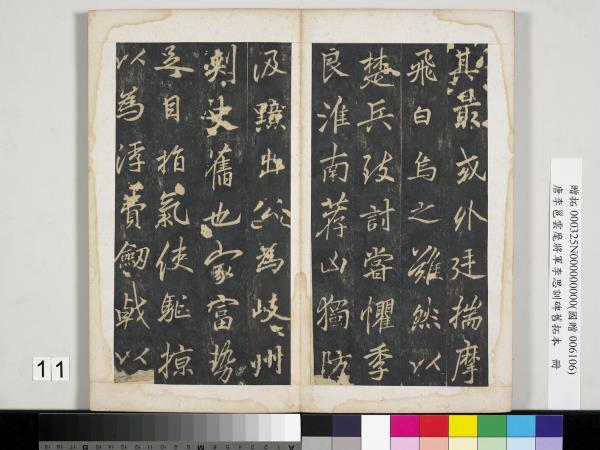 其最或外廷揣摩
飛白烏之雖然以
楚兵致討嘗懼季
良淮南荐凶獨防
汲黯出公為岐州
刺史舊也家富勢
足目指氣使駈掠
以為浮費劒戟以
贈拓 000325N000000000(國贈 006106)
唐李邕雲麾將軍李思訓碑舊拓本 冊
11